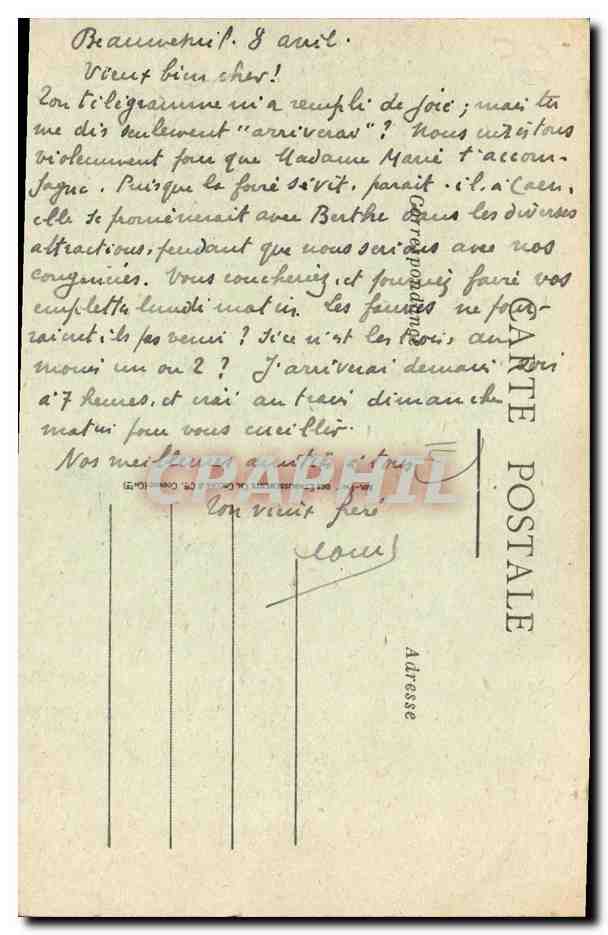 Beaumesnil. 8 avril.
Vieux bien cher!
Ton télégramme m'a rempli de joie ; mais tu
me dis seulement "arriverai" ? Nous insistons
violemment pour que Madame Marie t'accom-
pagne. Puisque la foire sévit, paraît-il, à Caen,
elle se promènerait avec Berthe dans les diverses
attractions, pendant que nous serions avec nos
congénères. Vous coucheriez, et pourriez faire vos
emplettes lundi matin. Les fauves ne pour-
raient-ils pas venir ? Si ce n'est les trois, au
moins un ou 2 ? J'arriverai demain soir
à 7 heures, et irai au train dimanche
matin pour vous cueillir.
Nos meilleures amitiés à tous
Ton vieux frère
Louis
Correspondance
CARTE POSTALE
Adresse
CPAPHIL